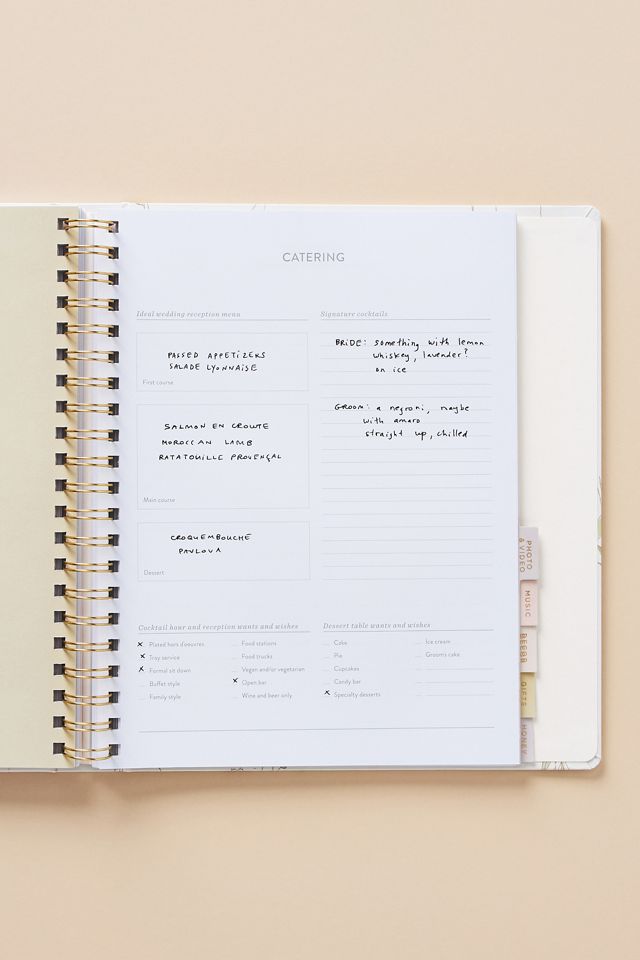 CATERING
Ideal wedding reception menu
PASSED APPETIZERS
SALADE LYONNAISE
First course
SALMON EN CROUTE
MOROCCAN LAMB
RATATOUILLE PROVENÇAL
Main course
CROQUEMBOUCHE
PAVLOVA
Dessert
Signature cocktails
BRIDE: something with lemon
whiskey, lavender?
on ice
GROOM: a negroni, maybe
with amaro
straight up, chilled
Cocktail hour and reception wants and wishes
x Plated hors d'oeuvres
x Tray service
x Formal sit down
Buffet style
Family style
Food stations
Food trucks
Vegan and/or vegetarian
x Open bar
Wine and beer only
Dessert table wants and wishes
Cake
Pie
Cupcakes
Candy bar
x Specialty desserts
Ice cream
Grooms cake
PHOTO
& VIDEO
MUSIC
GIFTS
HONEY